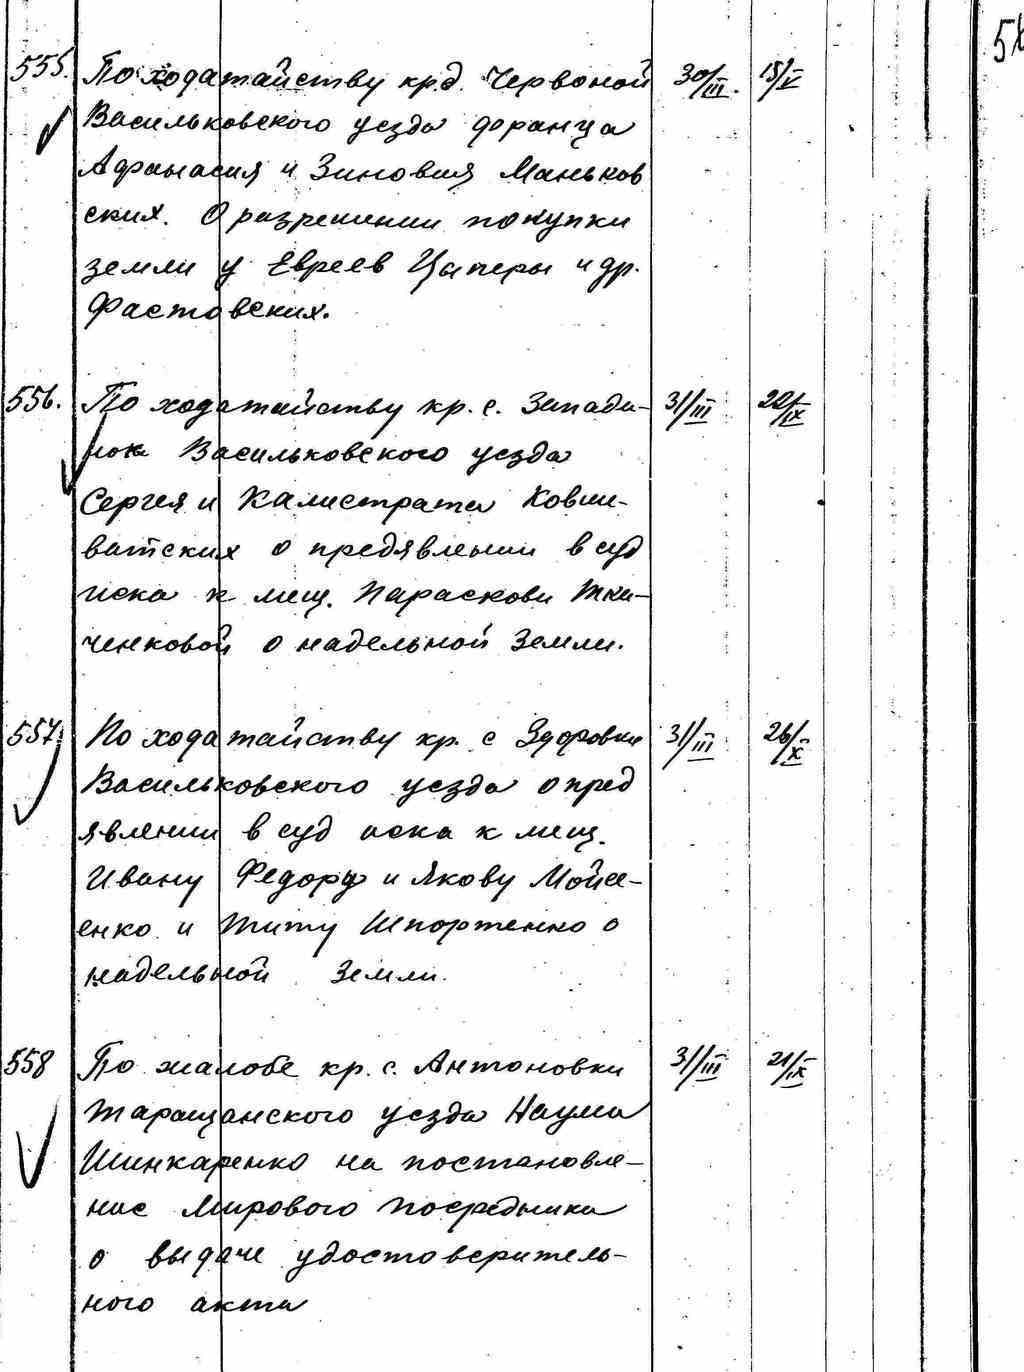 555. По ходатайству кр.д. Червоной 30/III. 15/V
Васильковского уезда
Афанасия и Зиновия Маньков
ских. О разрешении покупки
земли у Евреев Цыперы и др.
Фастовских.
556. По ходатайству кр. с. Запады- 31/III 20/IX
нок Васильковского уезда
Сергея и Калистрата Ковши-
ватских о предявлении в суд
иска к мещ. Парасковы Тка-
ченковой о надельной земли.
557. По ходатайству кр. с Здоровки 31/III 26/X
Васильковского уезда о пред
явлении в суд иска к мещ.
Ивану Федору и Якову Мойсе-
енко и Титу Шпортенко о
надельной земли.
558 По жалобе кр. с. Антоновки 31/III 21/IX
Таращанского уезда Наума
Шинкаренко на постановле-
ние Мирового посредника
о выдаче удостоверитель-
ного акта